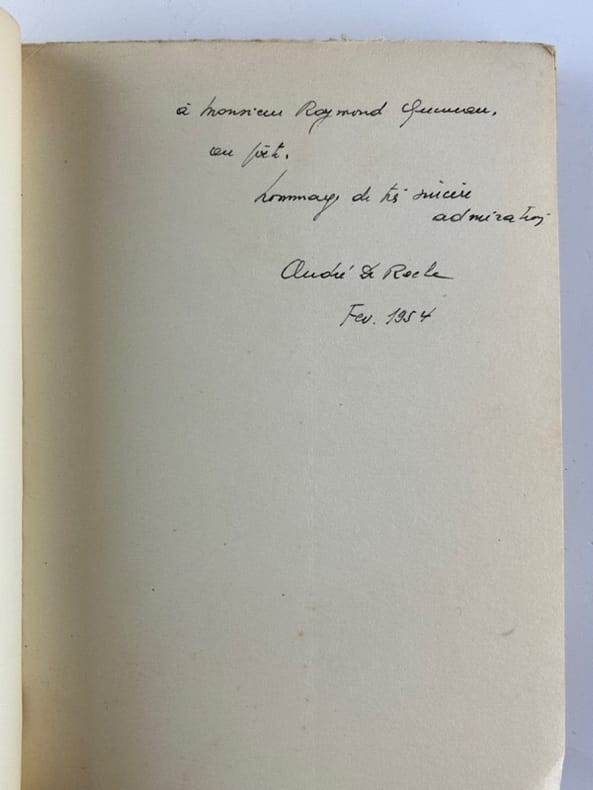 à Monsieur Raymond Queneau,
au poète,
hommage de très sincère
admiration
André De Rache
Fev. 1954